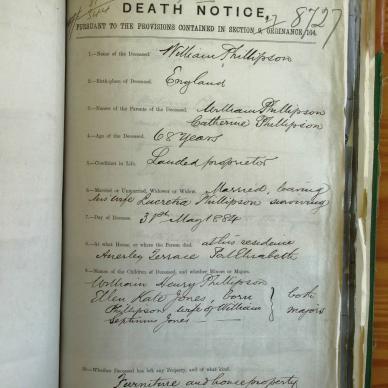 8727
DEATH NOTICE,
PURSUANT TO THE PROVISIONS CONTAINED IN SECTION 9, ORDINANCE 104.
1.—Name of the Deceased William Phillipson
2.—Birthplace of Deceased England
3.—Names of the Parents of the Deceased William Phillipson
Catherine Phillipson
4.—Age of the Deceased 68 Years
5.—Condition in Life Landed proprietor
6.—Married or Unmarried, Widower or Widow Married, leaving
his wife Lucretia Phillipson surviving
7.—Day of Decease 31st May 1884
8.—At what House, or where the Person died at his residence
Anerley Terrace Port Elizabeth
9.—Names of the Children of Deceased, and whether Minors or Majors.
William Henry Phillipson
Ellen Kate Jones, born
Phillipson wife of William
Septimus Jones
both
majors
10.—Whether Deceased has left any Property, and of what kind.
Furniture and house property